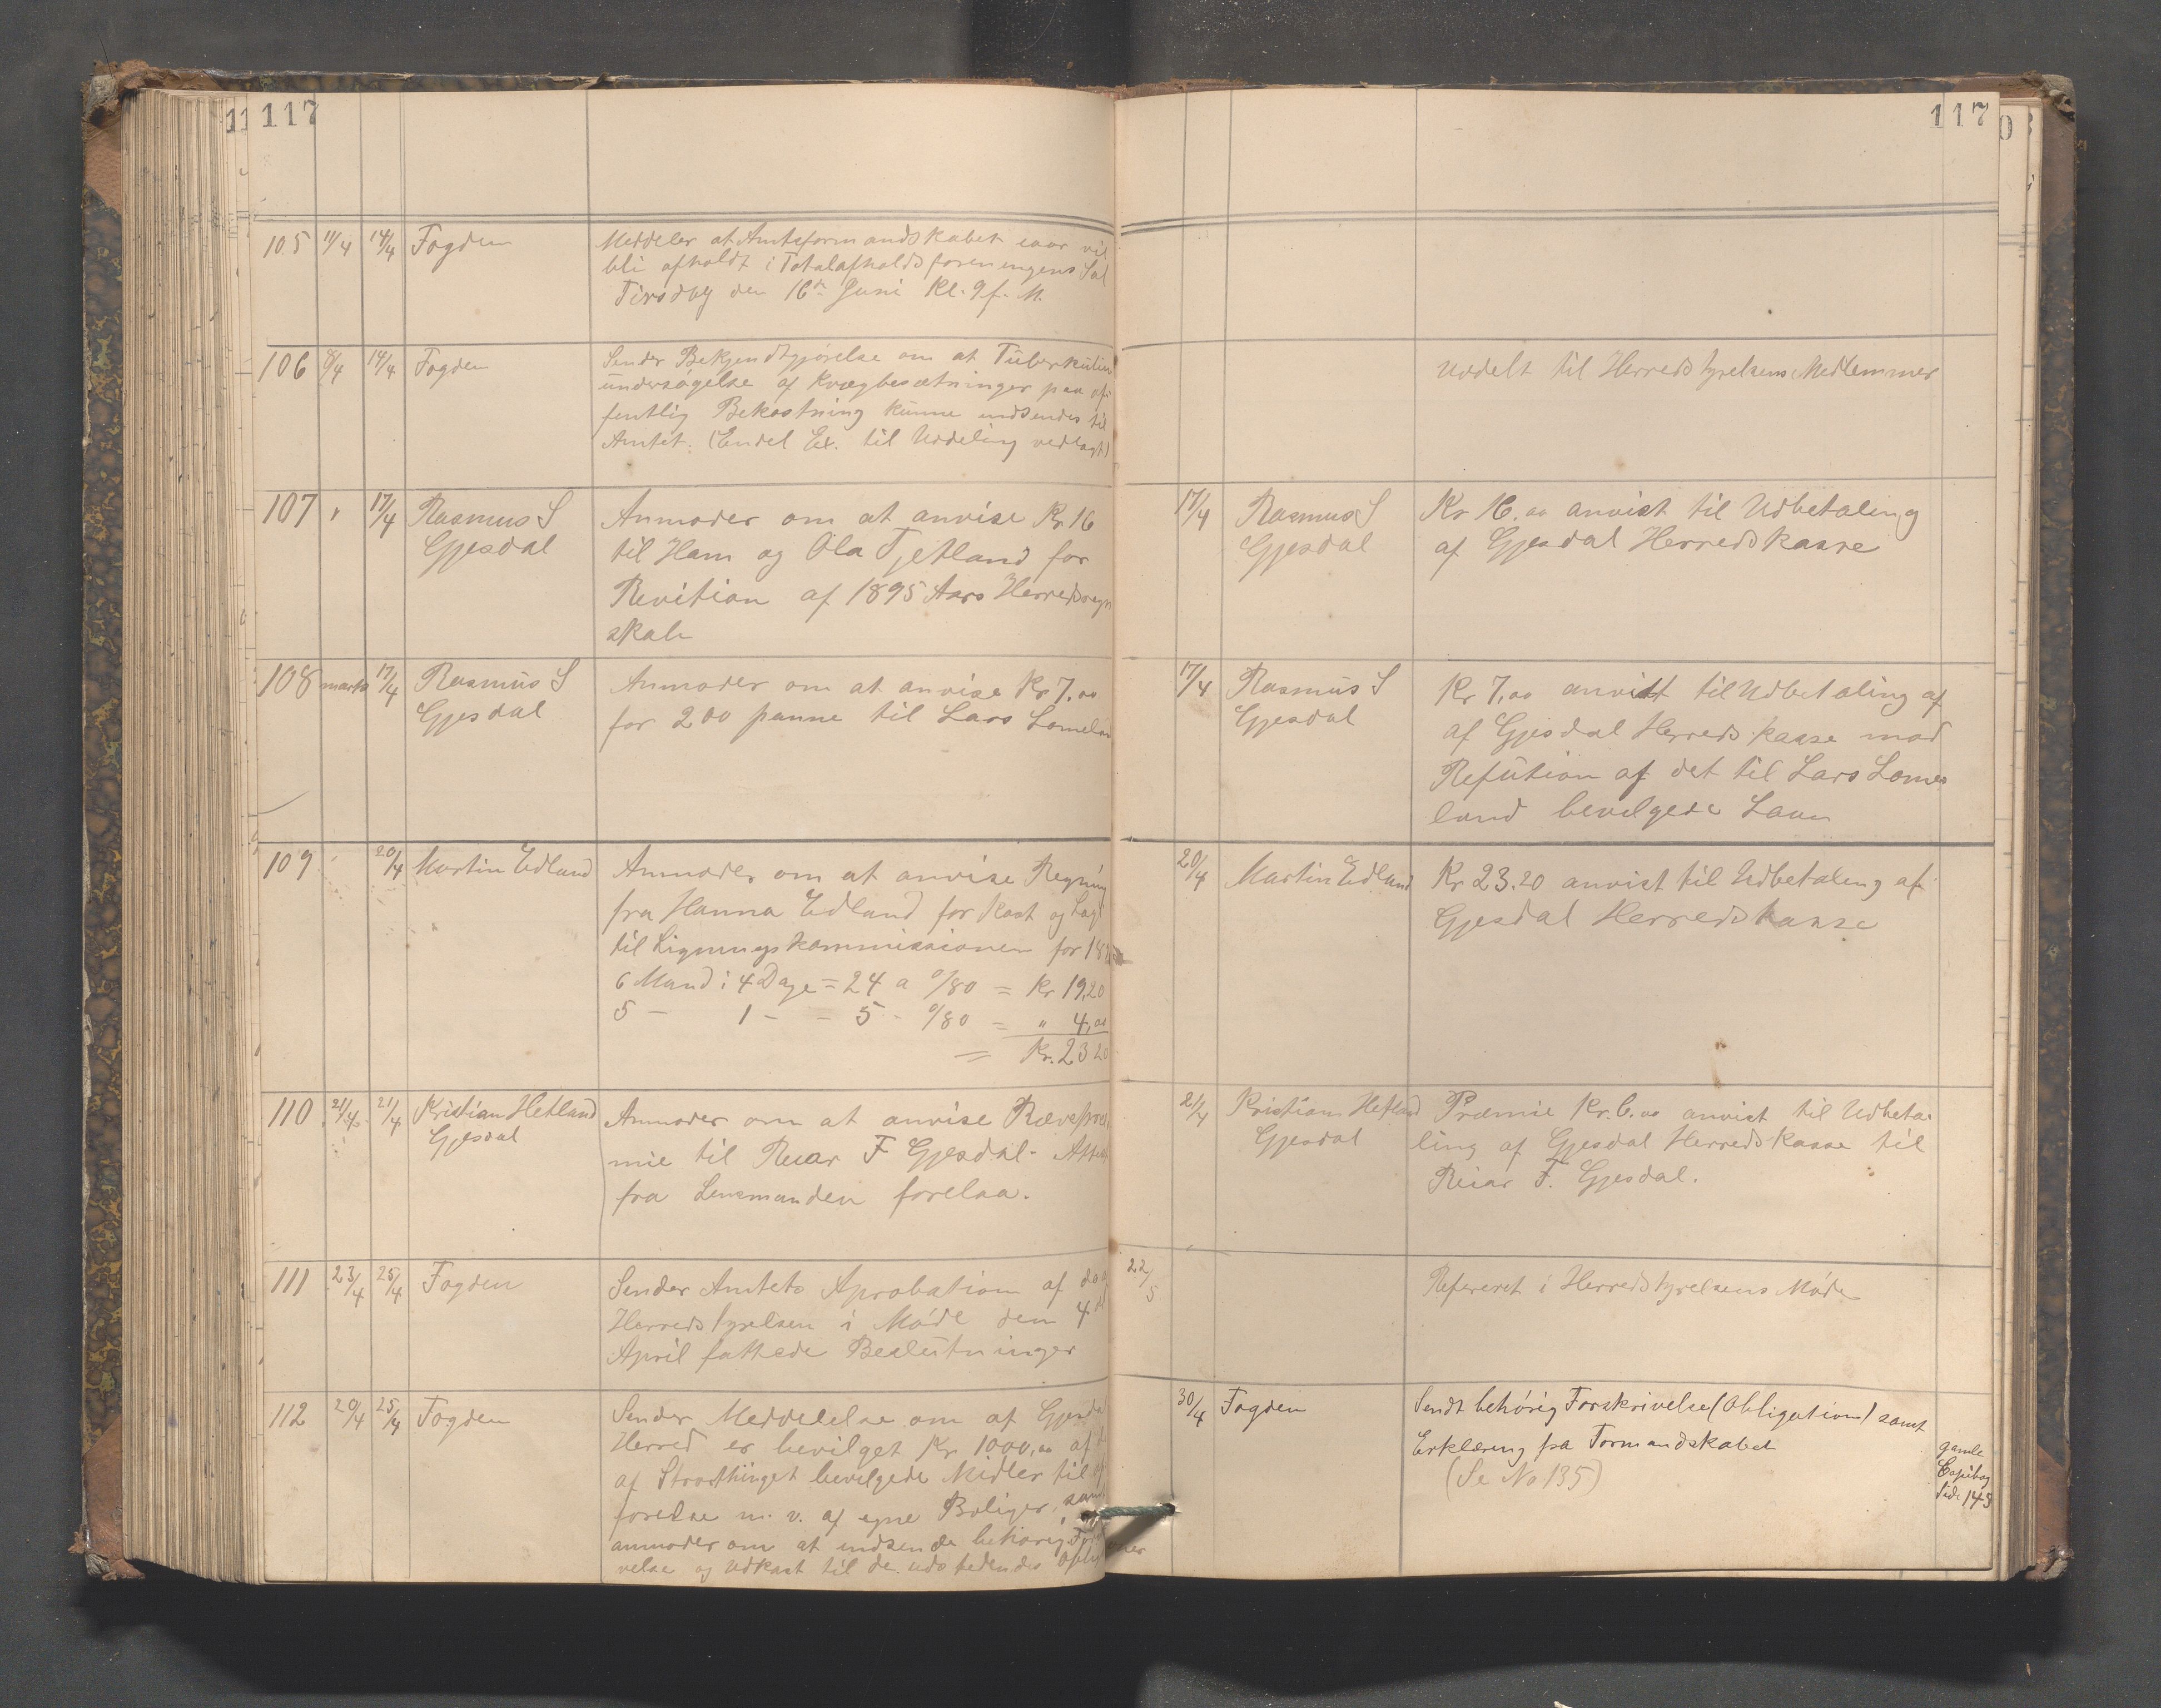 117
105 11/4 14/4 Fogden Meddeler at Amtsformandskabet iaar vil
bli afholdt i Totalafholdsforeningens Sal
Tirsdag den 16de Juni Kl. 9 f. M.
106 9/4 14/4 Fogden Sender Bekjendtgjørelse om at Tuberkulin
undersøgelse af Kvægbesætninger paa of
fentlig Bekostning kunne indsendes til
Amtet. (Endel Ex. til Uddeling vedlagt)
107 17/4 Rasmus S Anmoder om at anvise Kr 16
Gjesdal til Ham og Ola Tjetland for
Revition af 1895 Aars Herredsregn
skab
108 marts 17/4 Rasmus S Anmoder om at anvise Kr 7,00
Gjesdal for 200 panne til Lars Lomeland
109 20/4 Martin Edland Anmoder om at anvise Regning
fra Hanna Edland for Kost og Logi
til Ligningskommissionen for 18
6 Mand i 4 Dage = 24 a 0/80 = Kr 19,20
5 — 1 - - 5 - 0/80 = " 4,00
= Kr. 23 20
110 21/4 21/4 Kristian Hetland Anmoder om at anvise Rævepræ
Gjesdal mie til Reiar F Gjesdal - Attest
fra Lensmanden forelaa.
111 23/4 25/4 Fogden Sender Amtets Aprobation af de af
Herredstyrelsen i Møde den 4de
April fattede Beslutninger
112 20/4 25/4 Fogden Sender Meddelelse om at Gjesdal
Herred er bevilget Kr 1000,00 af
af Storthinget bevilgede Midler til
førelse m. v. af egne Boliger, samt
anmoder om at indsende behørig Forskri
velse og Udkast til de udbedendes
117
Uddelt til Herredstyrelsens Medlemmer
17/4 Rasmus S Kr 16.00 anvist til Udbetaling
Gjesdal af Gjesdal Herredskasse
17/4 Rasmus S Kr 7,00 anvist til Udbetaling af
Gjesdal af Gjesdal Herredskasse mod
Refution af det til Lars Lome
land bevilgede Laan
20/4 Martin Edland Kr 23.20 anvist til Udbetaling af
Gjesdal Herredskasse
21/4 Kristian Hetland Præmie Kr. 6.00 anvist til Udbeta
Gjesdal ling af Gjesdal Herredskasse til
Reiar F. Gjesdal.
22/5 Refereret i Herredstyrelsens Møde
30/4 Fogden Sendt behørig Forskrivelse (Obligation) samt
Erklæring fra Formandskabet
(Se No 135)
gamle
Copibog
Side 143